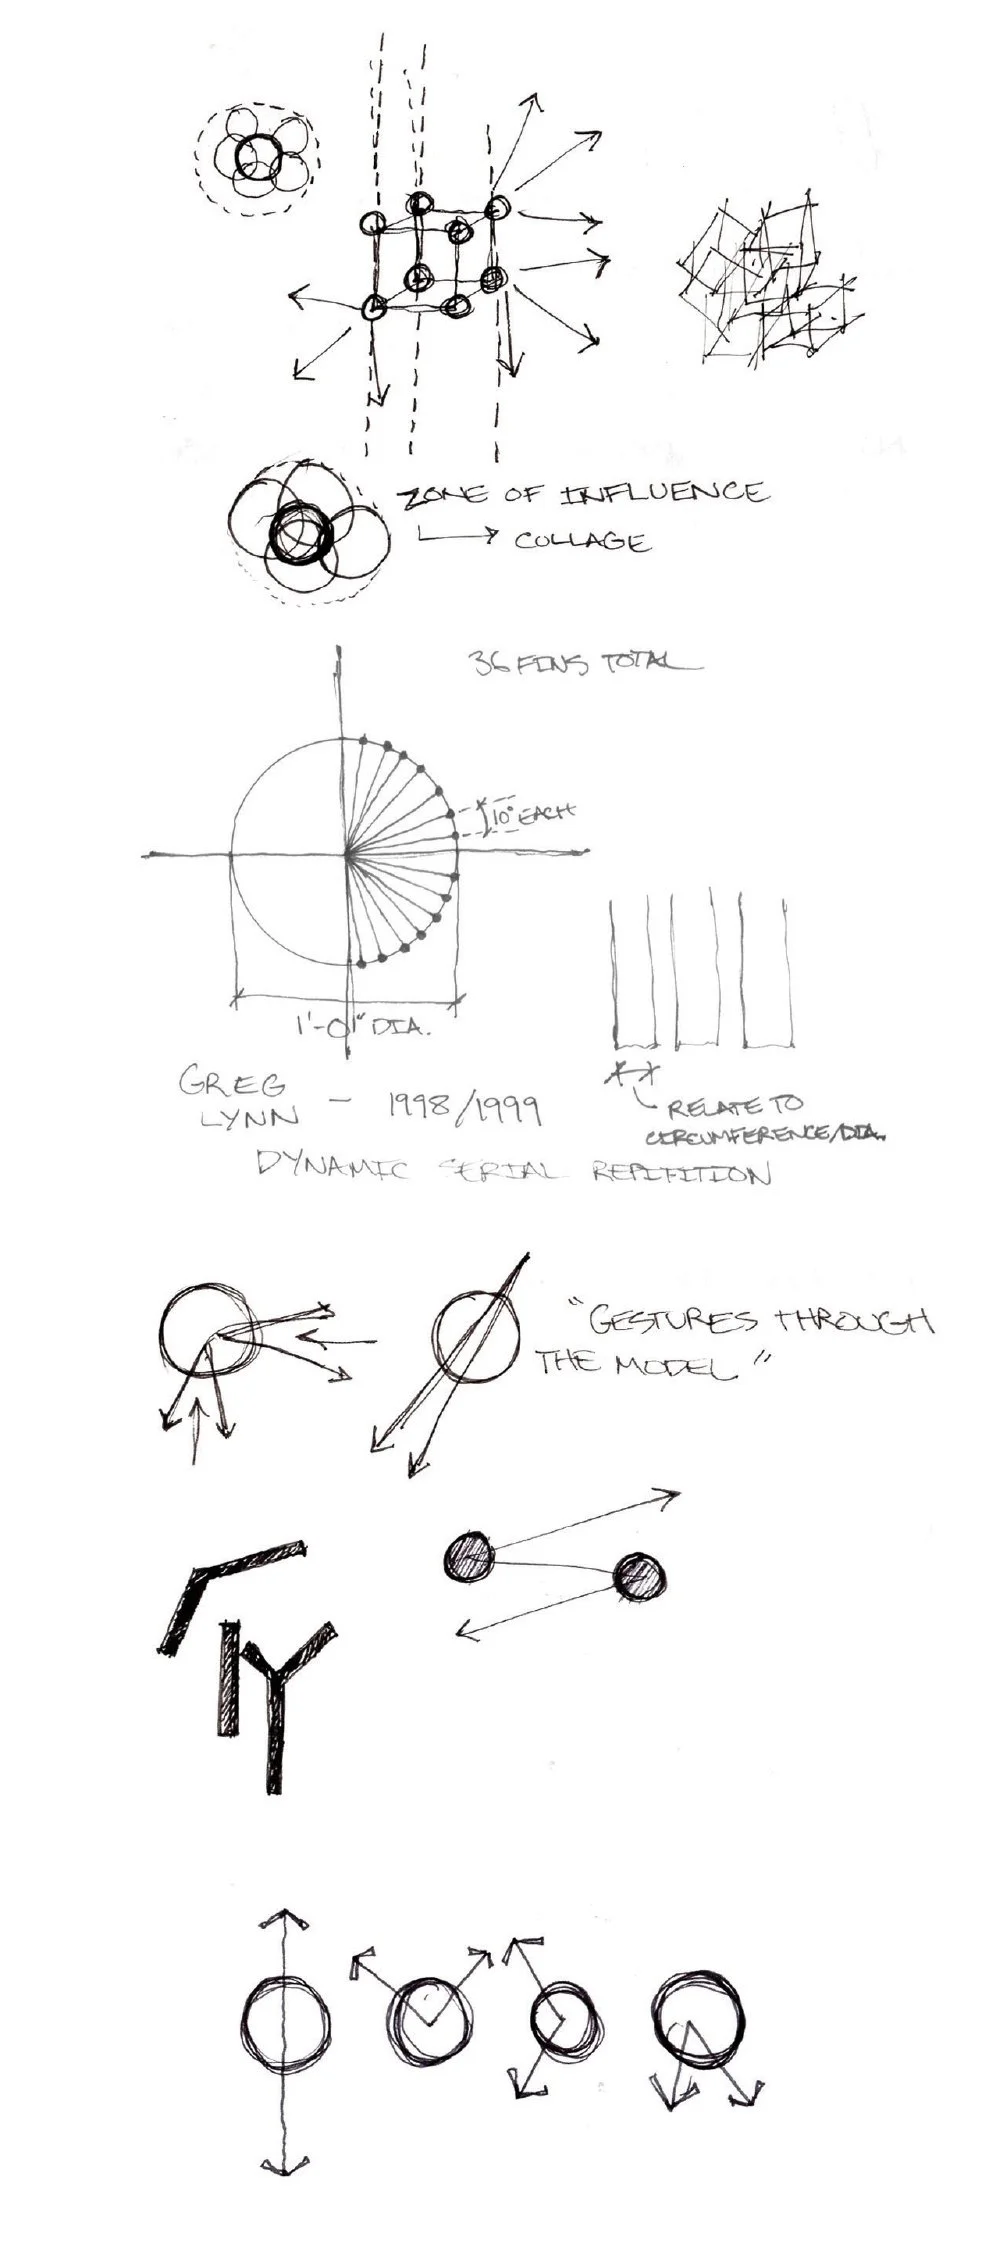 ZONE OF INFLUENCE
COLLAGE
36 FINS TOTAL
10° EACH
1'-0" DIA.
GREG
LYNN - 1998/1999
RELATE TO
CIRCUMFERENCE/DIA.
DYNAMIC SERIAL REPITITION
"GESTURES THROUGH
THE MODEL"